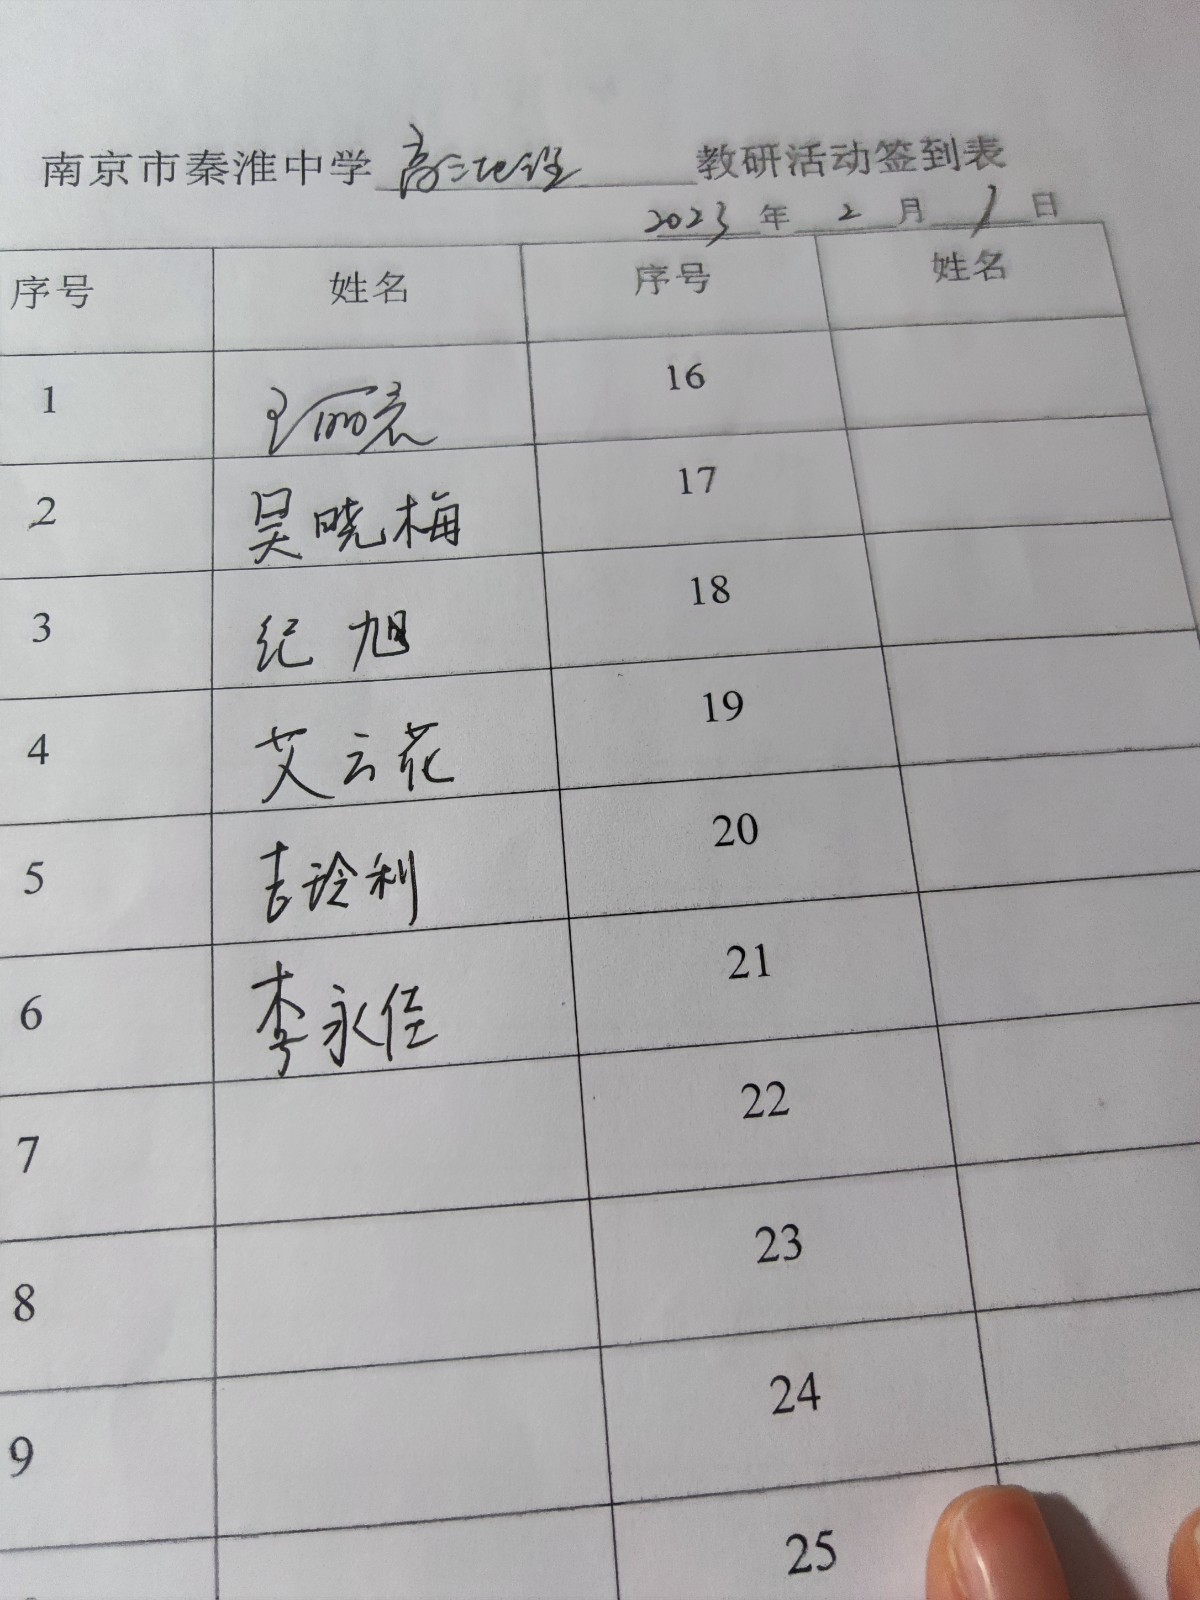 南京市秦淮中学 高三地理 教研活动签到表
2023 年 2 月 1 日
序号 姓名 序号 姓名
1 16
2 吴晓梅 17
3 纪旭 18
4 艾云花 19
5 吉玲利 20
6 李永佳 21
7 22
8 23
9 24
25